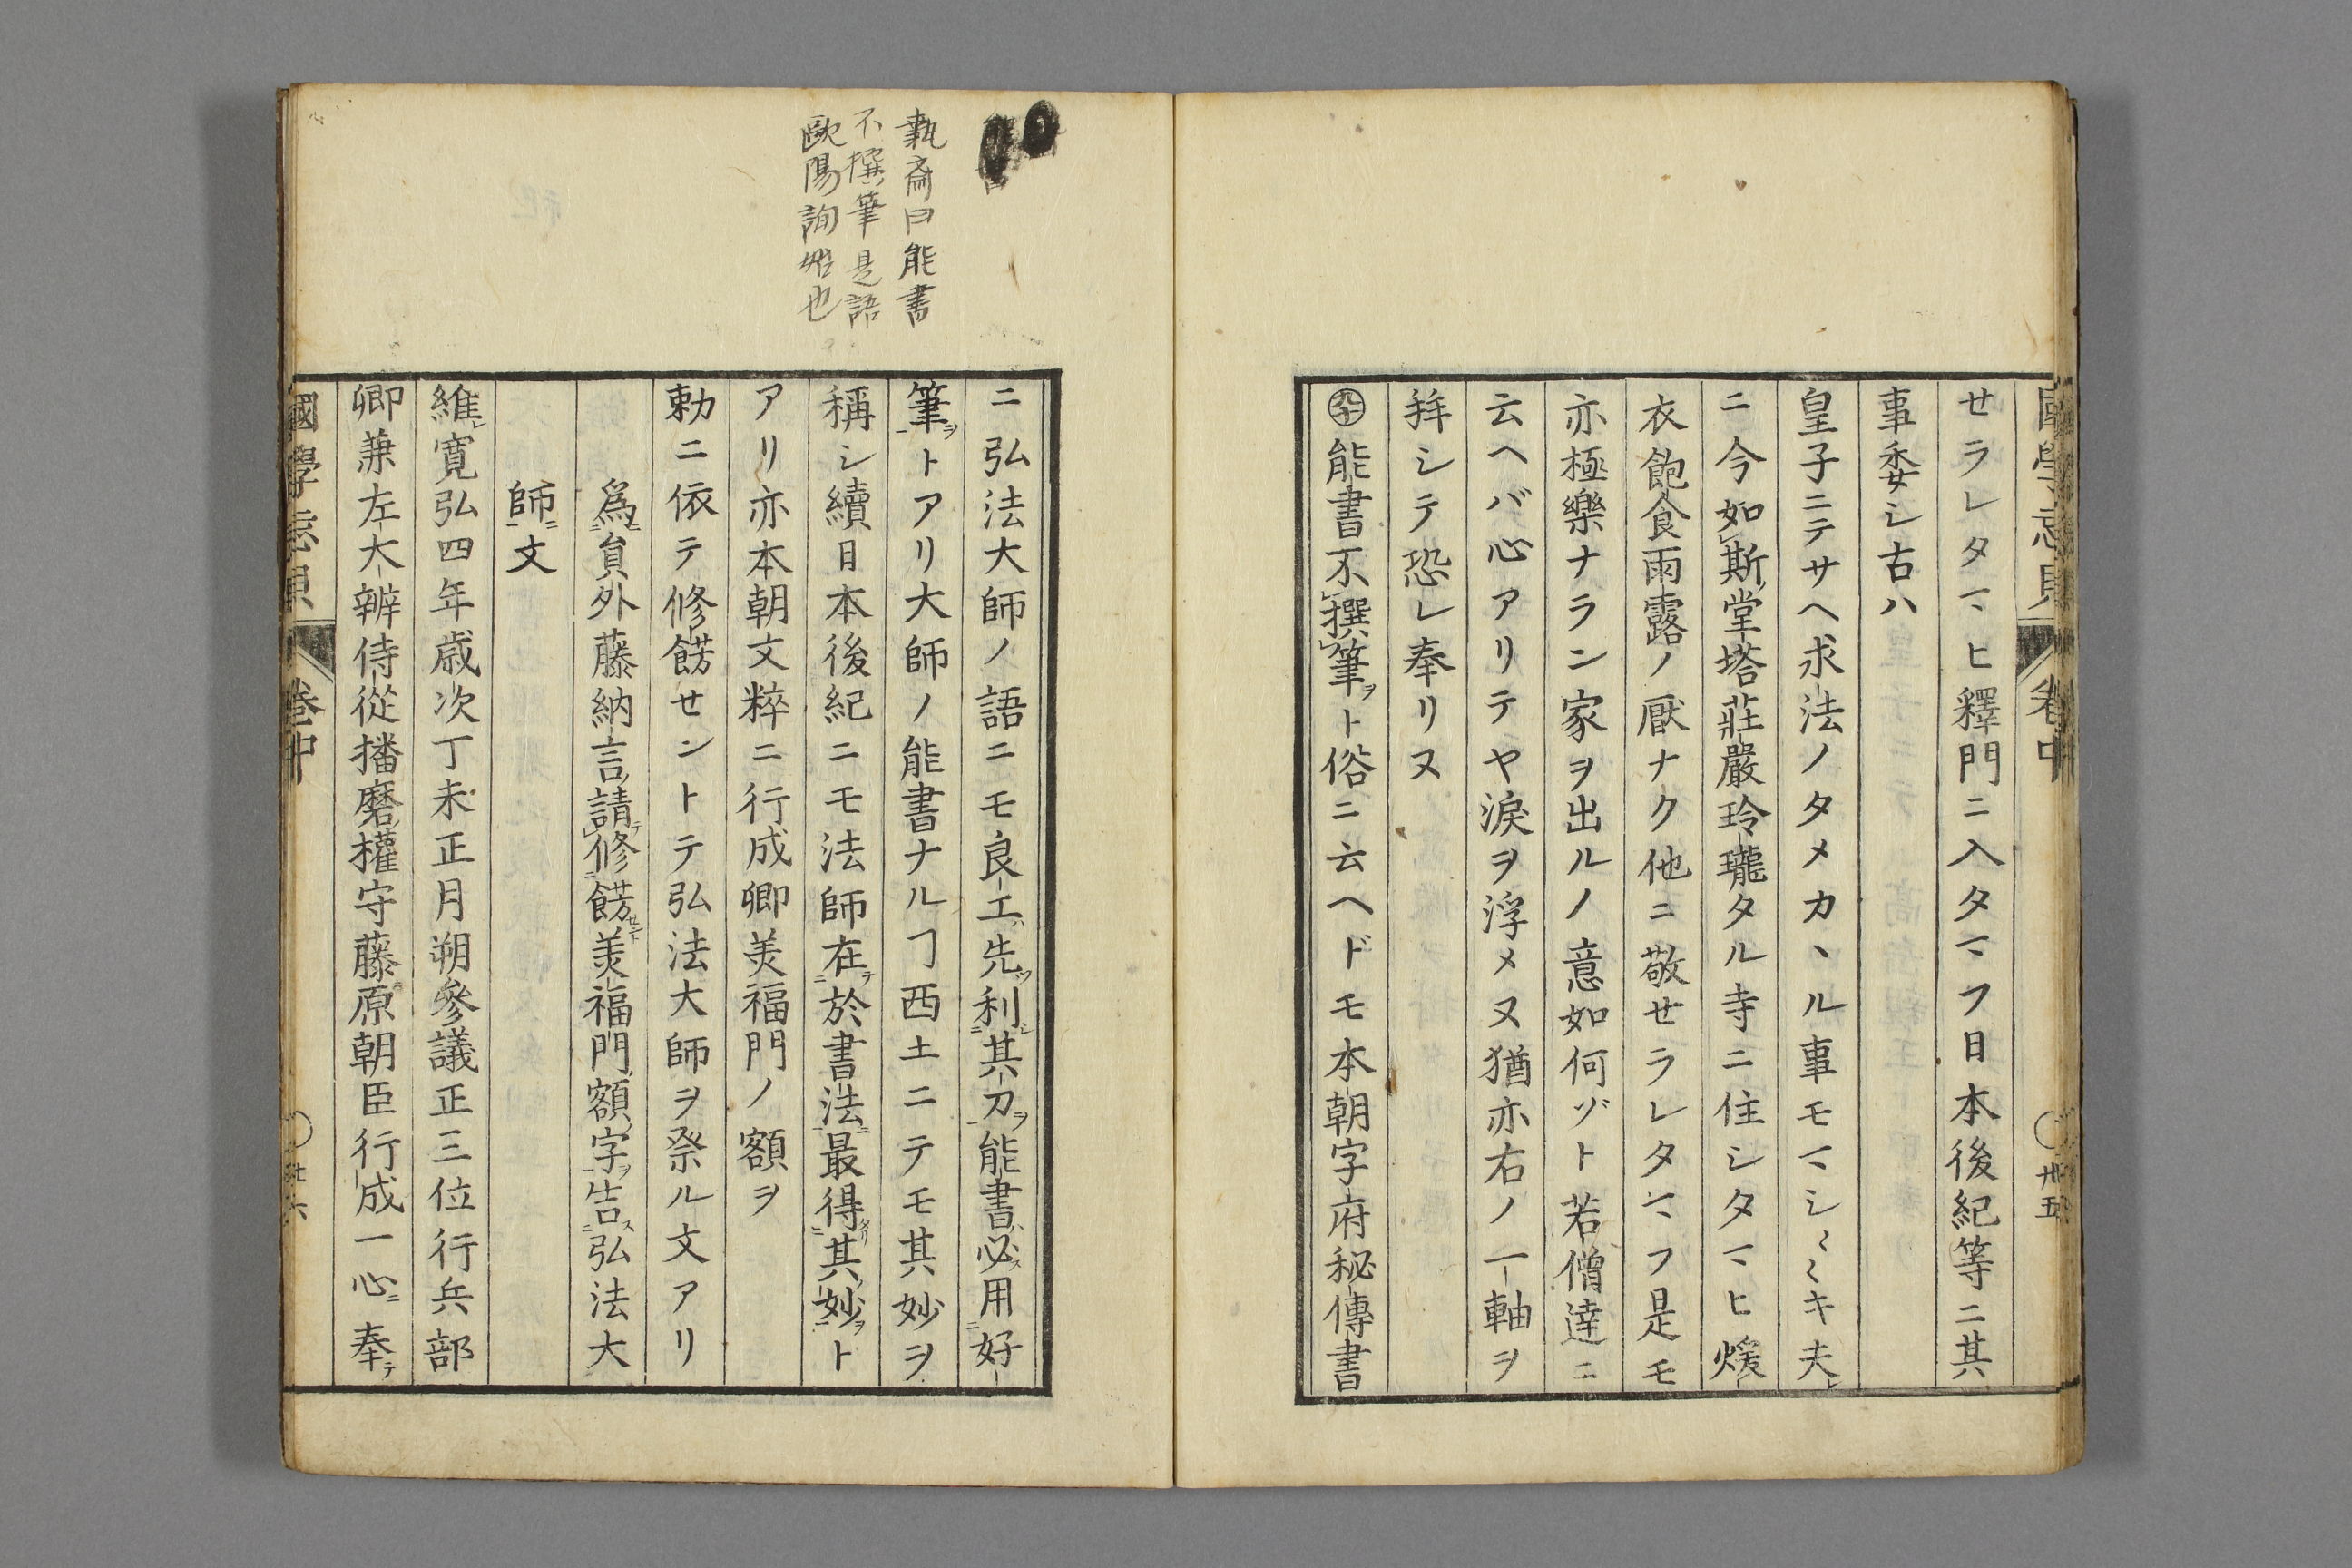 國學忘貝
卷中
卅五
セラレタマヒ釋門ニ入タマフ日本後紀等ニ其
事委シ古ハ
皇子ニテサヘ求法ノタメカヽル事モマシ〱キ夫
ニ今如斯堂塔莊嚴玲瓏タル寺ニ住シタマヒ煖
衣飽食雨露ノ厭ナク他ニ敬セラレタマフ是モ
亦極樂ナラン家ヲ出ルノ意如何ゾト若僧達ニ
云ヘバ心アリテヤ淚ヲ浮メヌ猶亦右ノ一軸ヲ
拜シテ恐レ奉リヌ
九十 能書不撰筆ヲト俗ニ云ヘドモ本朝字府秘傳書
執齋曰能書
不撰筆是語
歐陽詢也
ニ弘法大師ノ語ニモ良工先利其刀ヲ能書必用好
筆ヲトアリ大師ノ能書ナルヿ西土ニテモ其妙ヲ
稱シ續日本後紀ニモ法師在於書法最得其妙ヲト
アリ亦本朝文粹ニ行成卿美福門ノ額ヲ
勅ニ依テ修餝セントテ弘法大師ヲ祭ル文アリ
爲員外藤納言請修餝美福門額字告弘法大
師文
維寬弘四年歳次丁未正月朔參議正三位行兵部
卿兼左大辨侍從播磨權守藤原朝臣行成一心ニ奉テ
國學忘貝
卷中
卅六